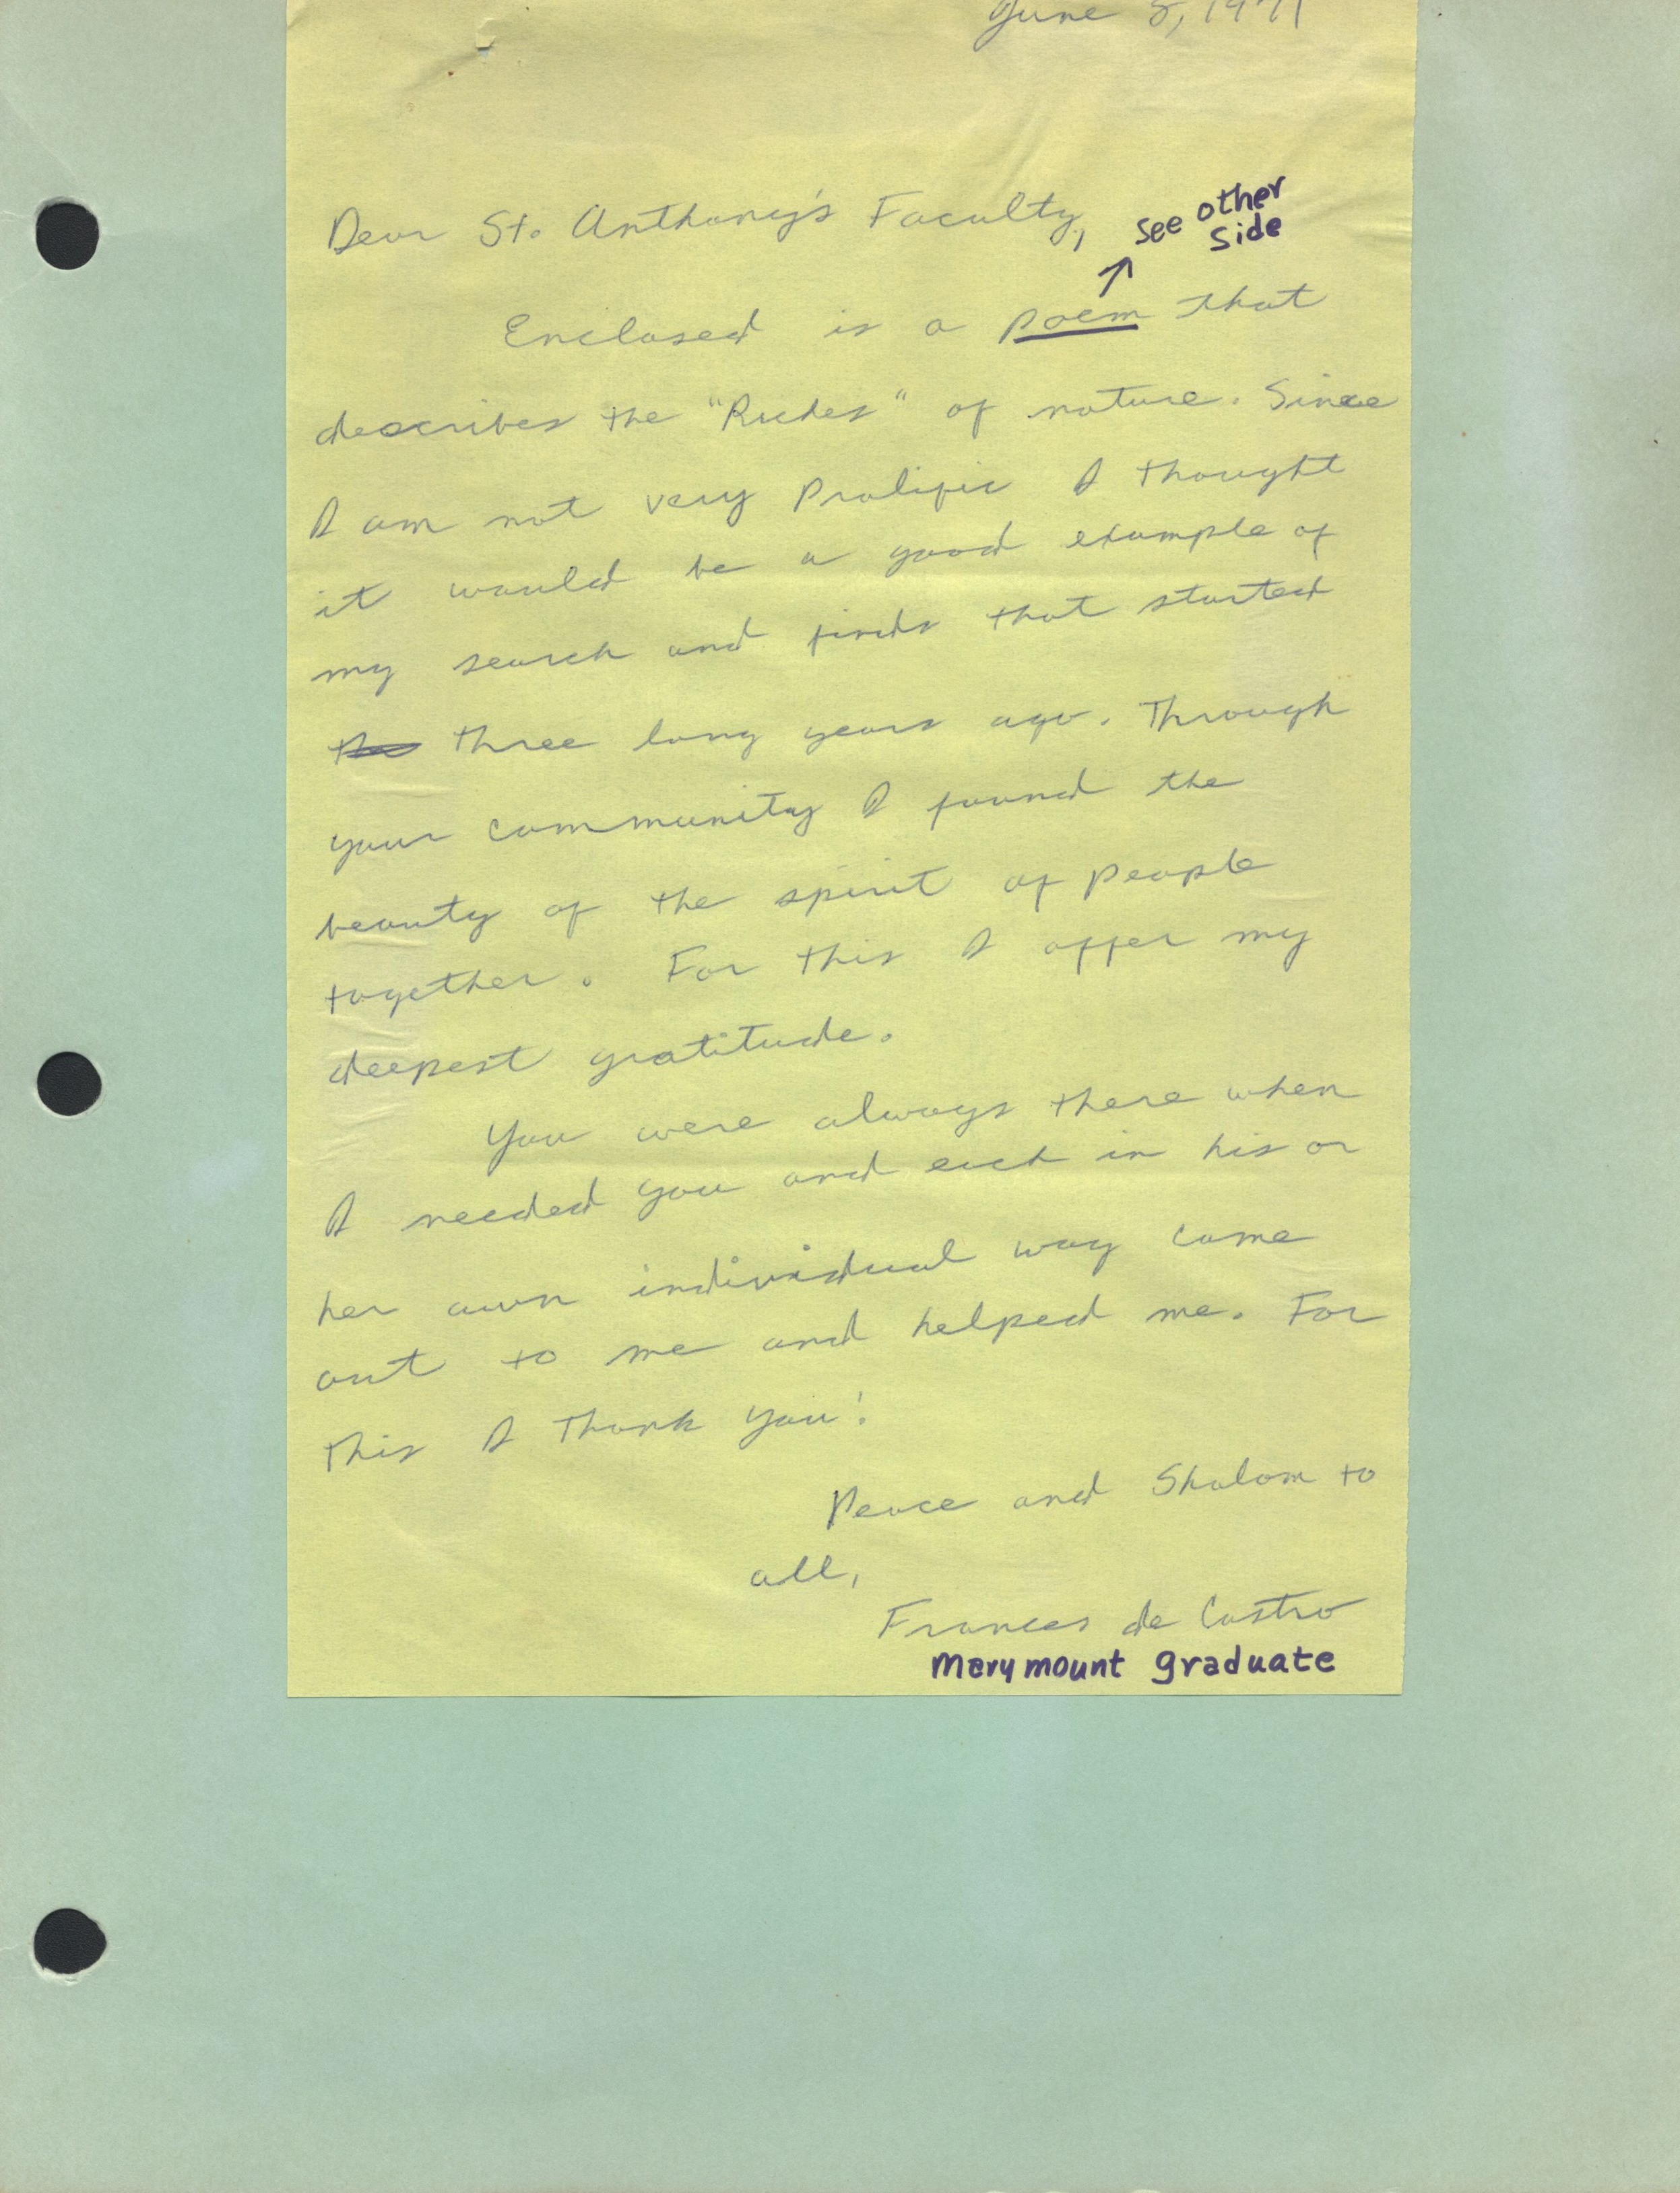 June 8, 1971
Dear St. Anthony's Faculty,
see other
side
Enclosed is a poem that
describes the "Riches" of nature. Since
I am not very Prolific I thought
it would be a good example of
my search and finds that started
three long years ago. Through
your community I found the
beauty of the spirit of people
together. For this I offer my
deepest gratitude.
You were always there when
I needed you and each in his or
her own individual way came
out to me and helped me. For
this I thank you!
Peace and Shalom to
all,
Frances de Castro
Marymount graduate